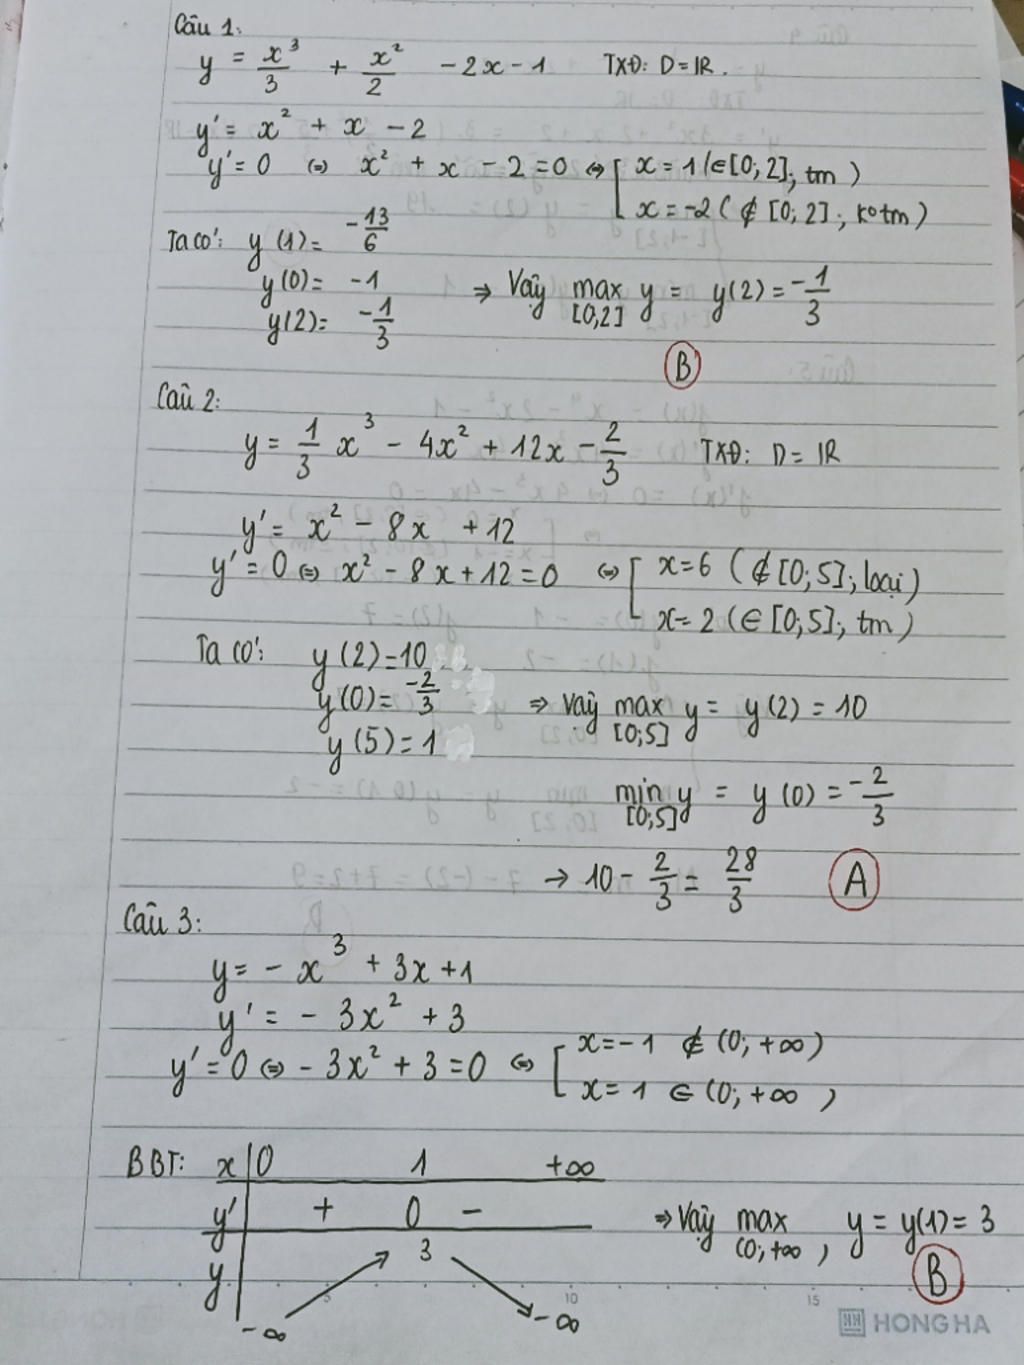 Câu 1:
y = x³/3 + x²/2 - 2x - 1 TXĐ: D = IR.
y' = x² + x - 2
y' = 0 ⇔ x² + x - 2 = 0 ⇔ [ x = 1 (∈ [0; 2]; tm)
x = -2 (∉ [0; 2]; ko tm)
Ta có: y(1) = -13/6
y(0) = -1 ⇒ Vậy max [0,2] y = y(2) = -1/3
y(2) = -1/3
B
Câu 2:
y = 1/3 x³ - 4x² + 12x - 2/3 TXĐ: D = IR
y' = x² - 8x + 12
y' = 0 ⇔ x² - 8x + 12 = 0 ⇔ [ x = 6 (∉ [0; 5]; loại)
x = 2 (∈ [0; 5]; tm)
Ta có: y(2) = 10
y(0) = -2/3 ⇒ Vậy max [0;5] y = y(2) = 10
y(5) = 1
min [0;5] y = y(0) = -2/3
→ 10 - 2/3 = 28/3 A
Câu 3:
y = - x³ + 3x + 1
y' = - 3x² + 3
y' = 0 ⇔ - 3x² + 3 = 0 ⇔ [ x = -1 ∉ (0; +∞)
x = 1 ∈ (0; +∞)
BBT: x | 0 1 +∞
y' + 0 - ⇒ Vậy max (0; +∞) y = y(1) = 3
3
y
B
-∞ -∞
5 10 15
HONG HA